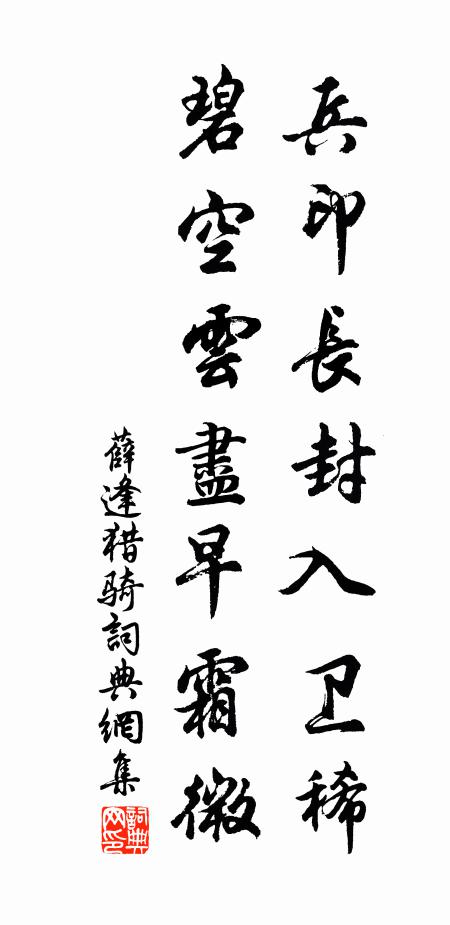 兵印長封入卫稀
碧空雲盡早霜微
薛逢猎骑詞典網集
詞典网印